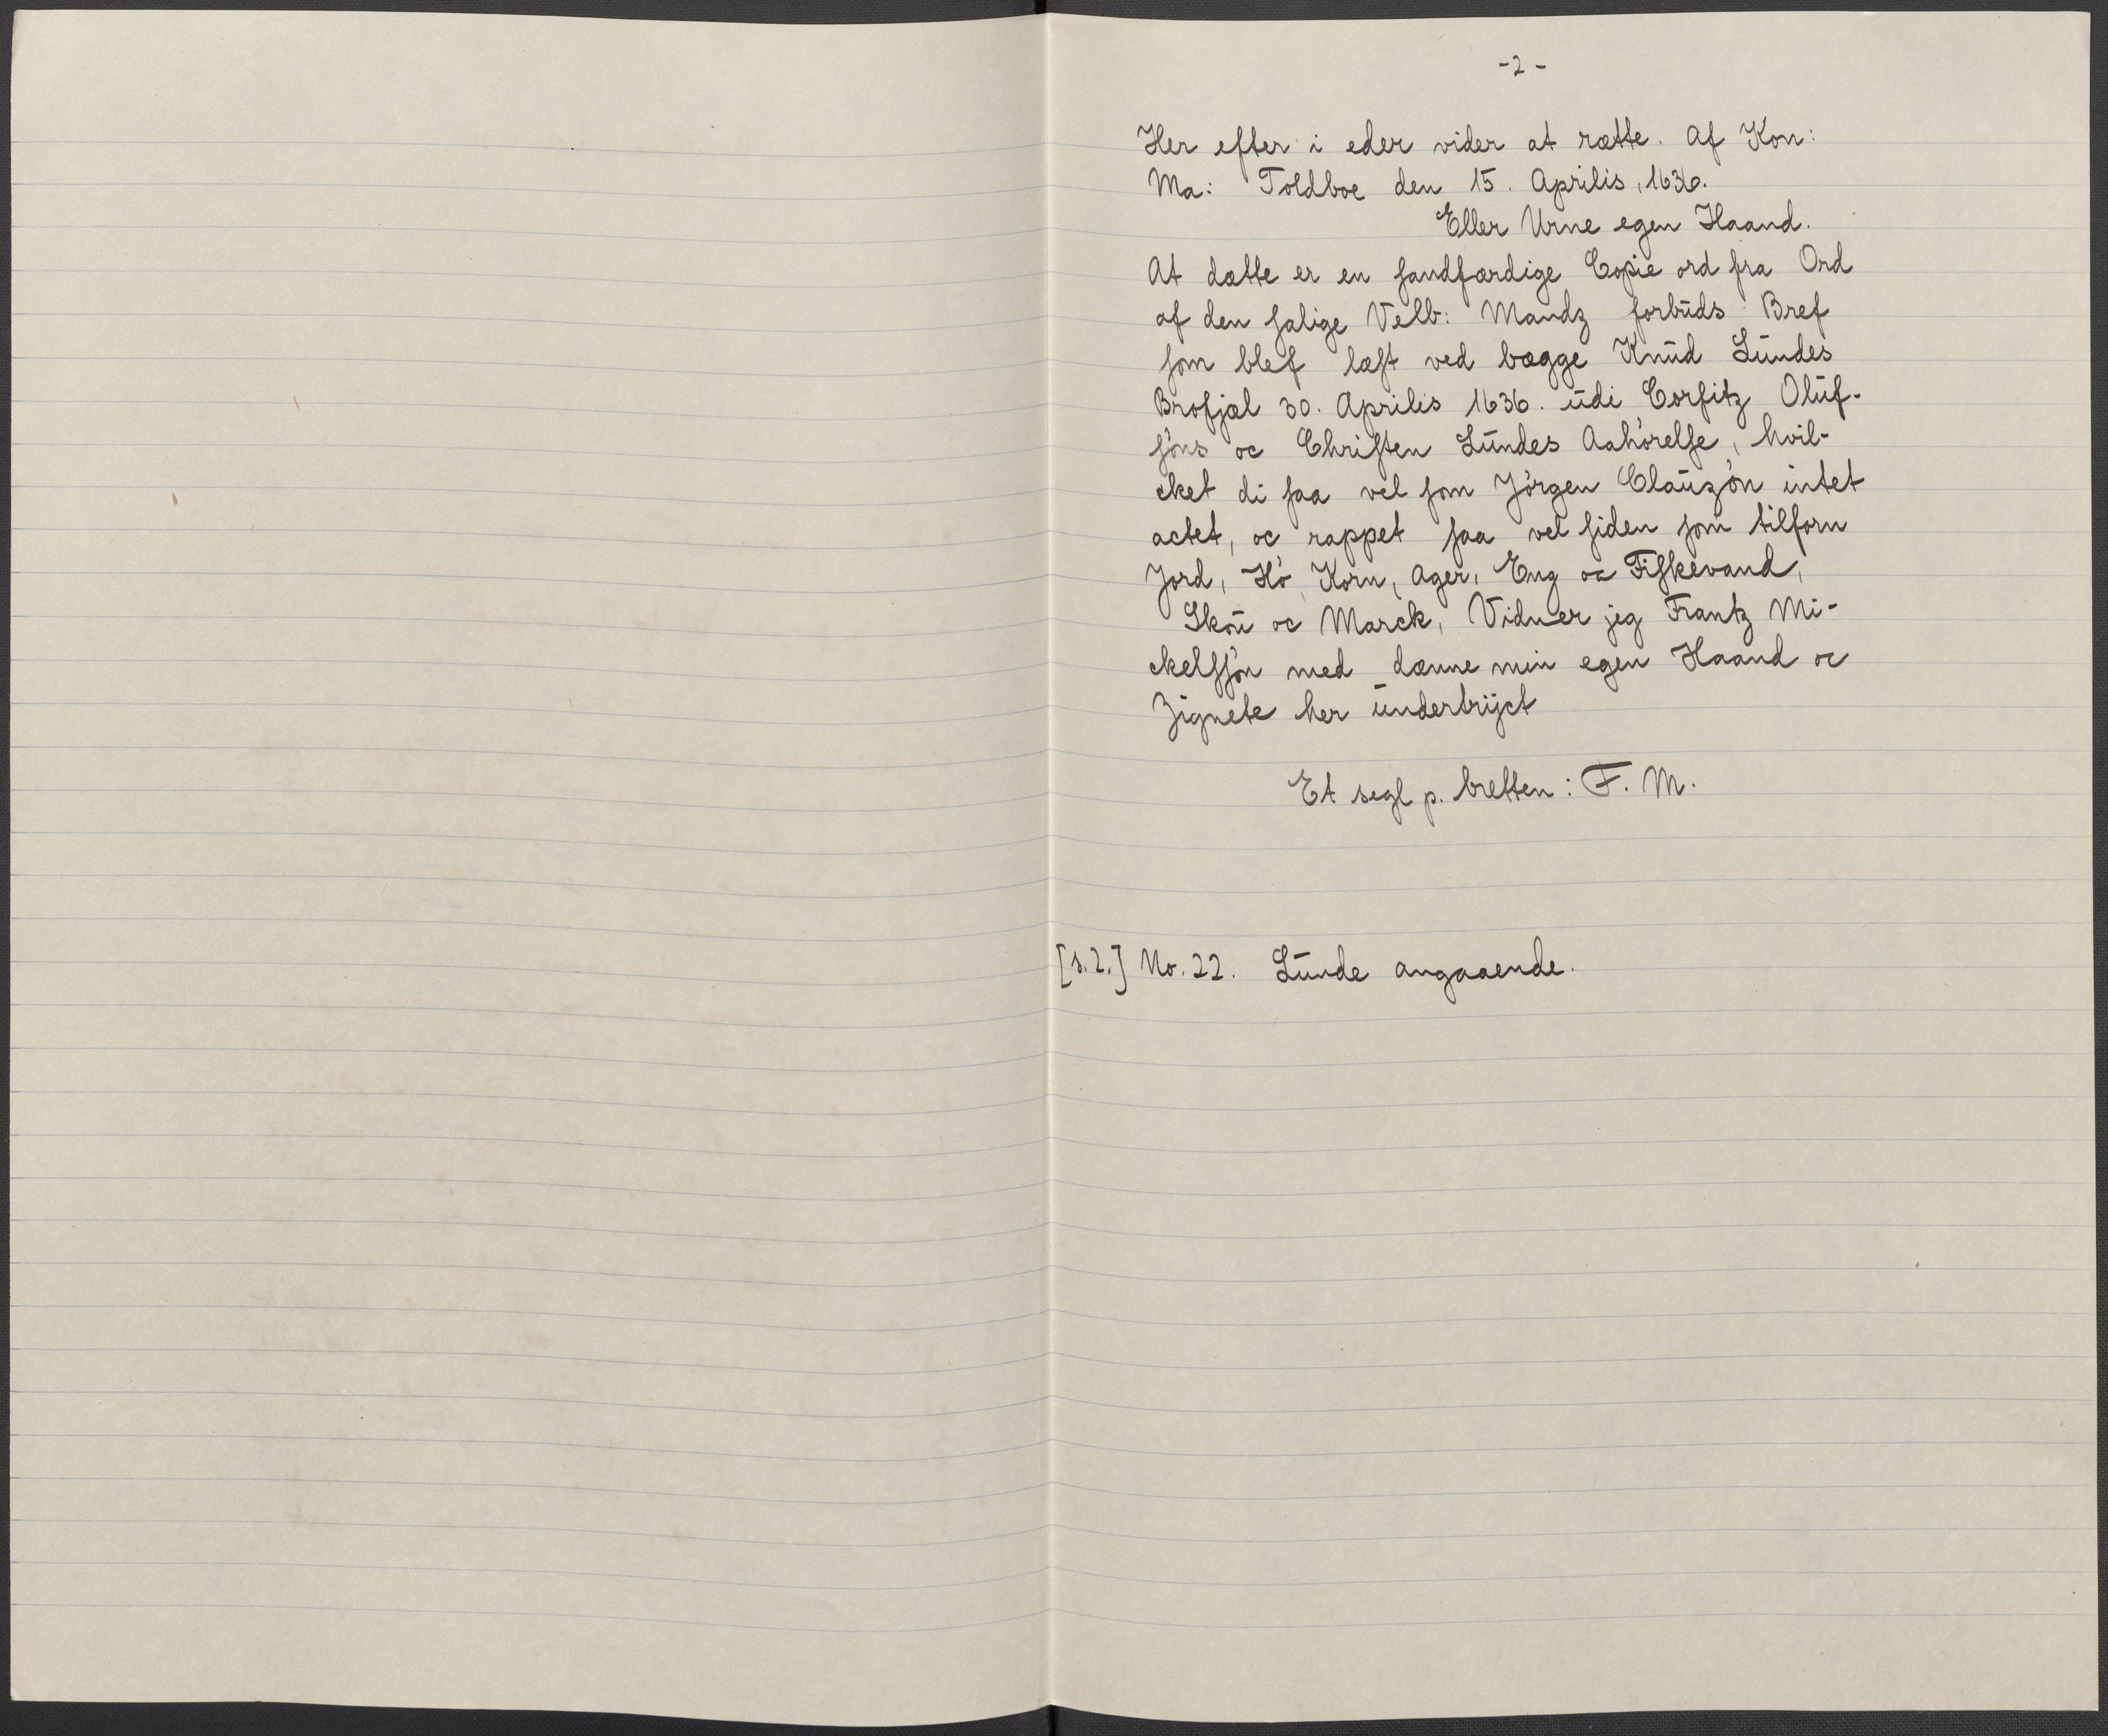 -2-
Her efter i eder vider at rætte. Af Kon:
Ma: Toldboe den 15. Aprilis, 1636.
Eller Urne egen Haand.
At dætte er en ſandfærdige Copie ord fra Ord
af den ſalige Velb: Mandz forbūds Bref
ſom blef læſt ved bægge Knūd Lūndes
Broſjæl 30. Aprilis 1636. ūdi Corfitz Olūf-
ſöns oc Chriſten Lūndes Aahörelſe, hvil-
cket di ſaa vel ſom Jörgen Claūzön intet
actet, oc rappet ſaa vel ſiden ſom tilforn
Jord, Hö, Korn, Ager, Eng oc Fiſkevand,
Skou oc Marck, Vidner jeg Frantz Mi-
ckelſſön med dænne min egen Haand oc
Zignete her ūndertrÿct
Et segl p. bretten: F. M.
[s.2.] No. 22. Lūnde angaaende.